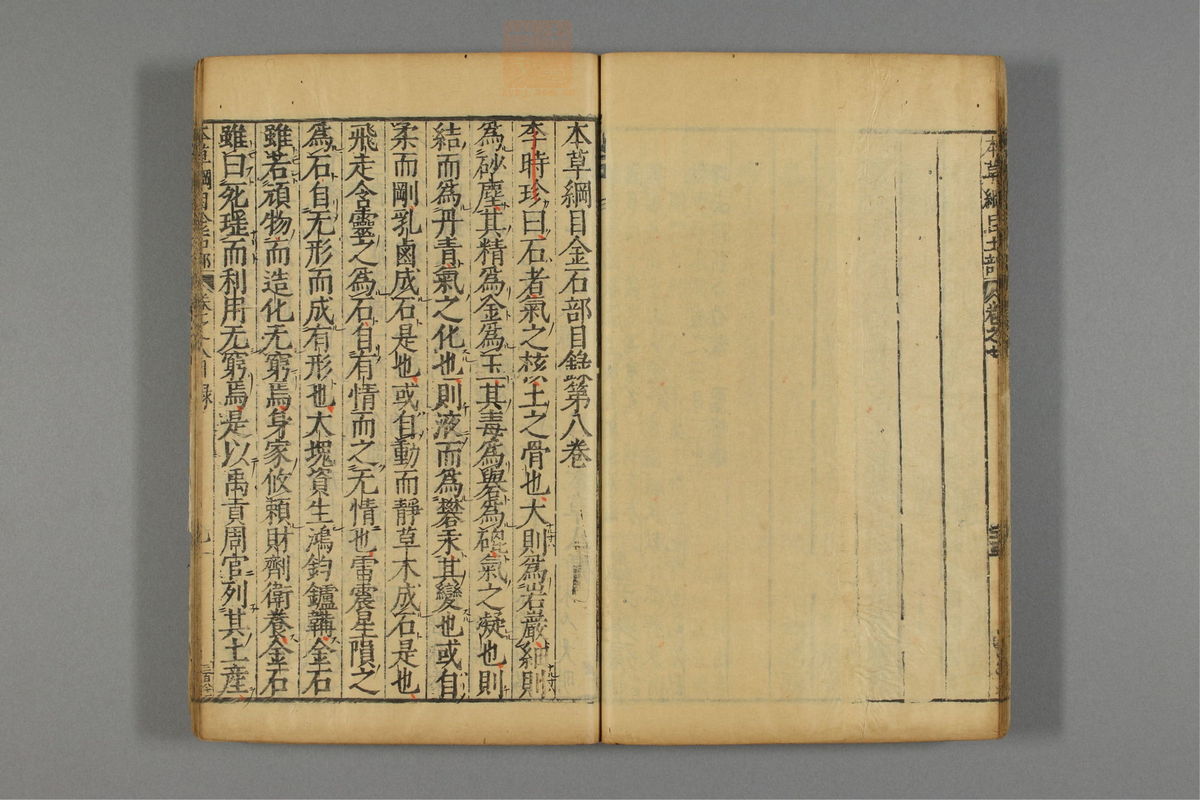 本草綱目土部 卷之七
本草綱目金石部目錄第八卷
李時珍曰石者氣之核土之骨也大則爲岩巖細則
爲砂塵其精爲金爲玉其毒爲礜爲砒氣之凝也則
結而爲丹青氣之化也則液而爲礬汞其變也或自
柔而剛乳鹵成石是也或自動而靜草木成石是也
飛走含靈之爲石自有情而之无情也雷震星隕之
爲石自无形而成有形也大塊資生鴻鈞鑪鞴金石
雖若頑物而造化无窮焉身家攸賴財劑衛養金石
雖曰死瑤而利用无窮焉是以禹貢周官列其土産
本草綱目金石部 卷之八目錄